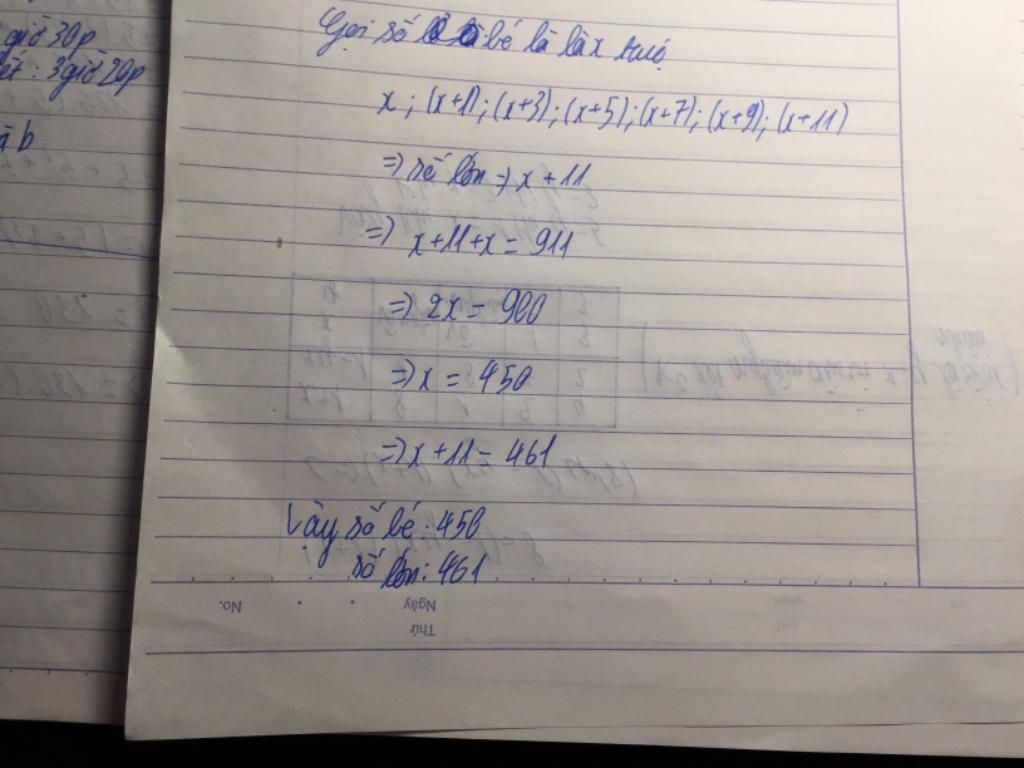 giờ 30p
ết: 3 giờ 20p
à b
Gọi số bé là là x
x ; (x+1); (x+3); (x+5); (x+7); (x+9); (x+11)
=> số lớn => x + 11
=> x + 11 + x = 911
=> 2x = 900
=> x = 450
=> x + 11 = 461
Vậy số bé : 450
số lớn : 461
No.
Ngày
Thứ